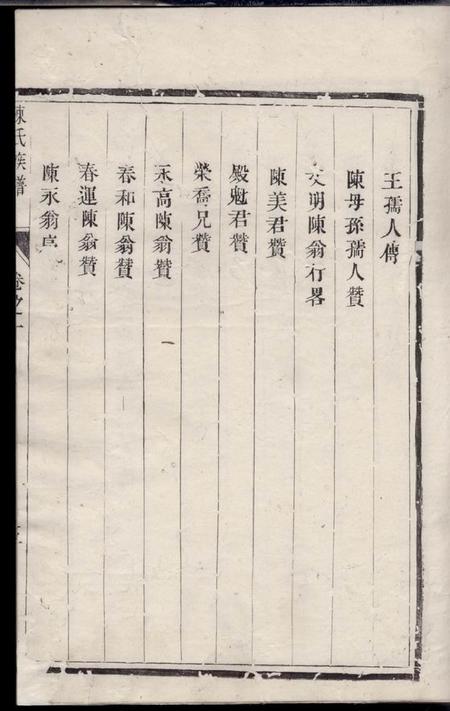 王孺人傳
陳母孫孺人贊
文明陳翁行畧
陳美君贊
殿魁君贊
榮喬兄贊
永高陳翁贊
春和陳翁贊
春運陳翁贊
陳永翁
陳氏族譜
卷之一